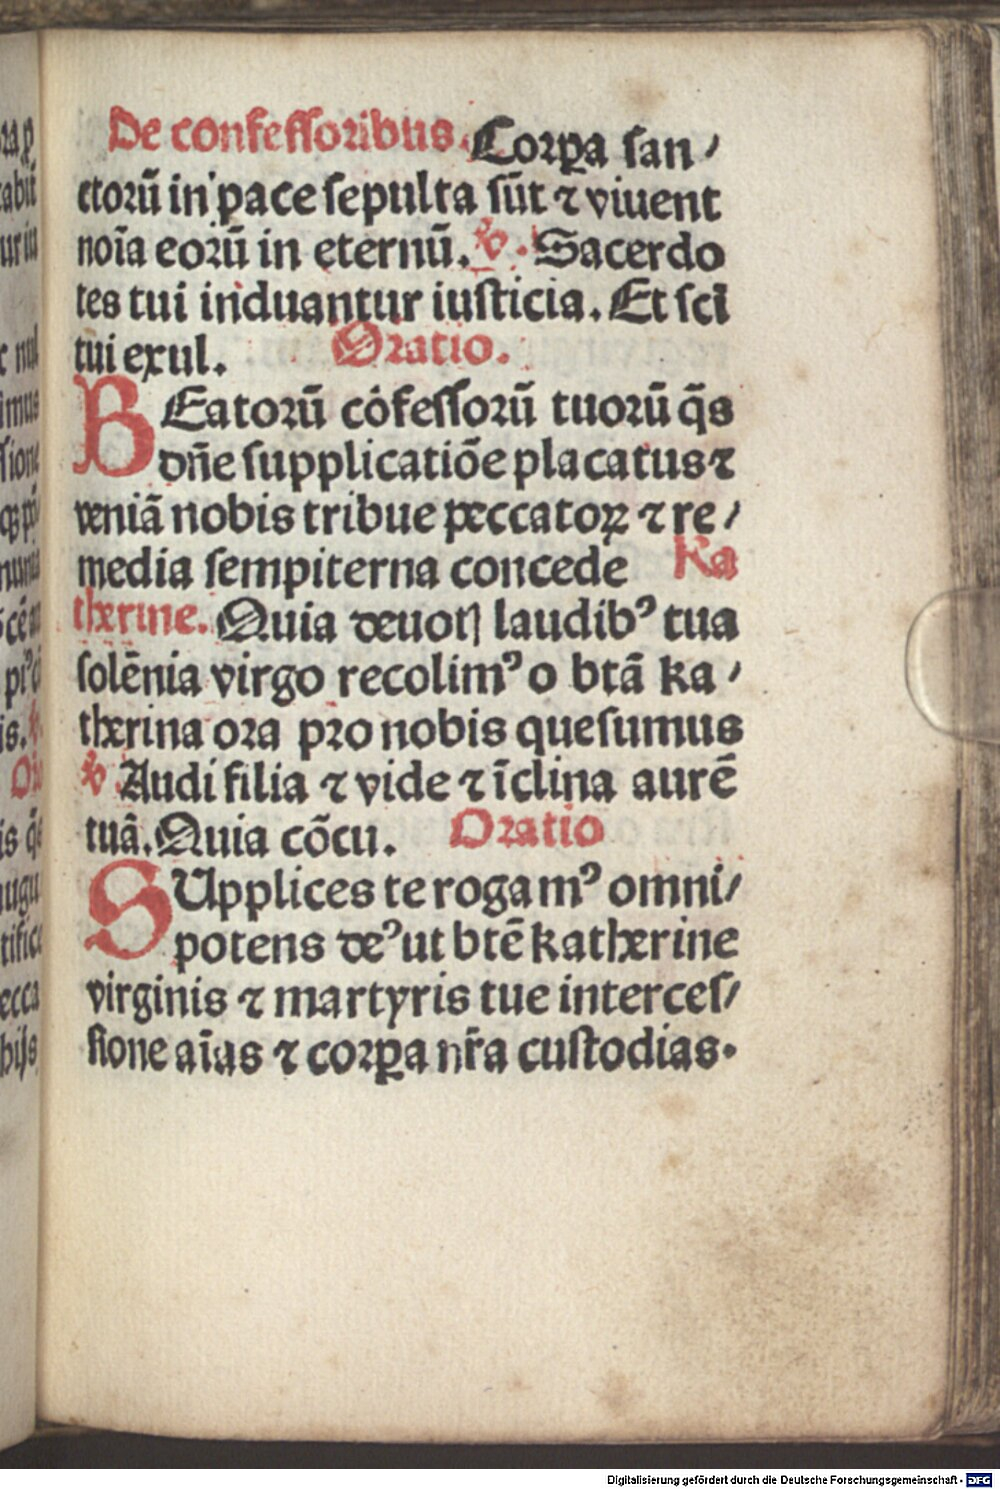 De confeſſoribus. Corꝑa san⸗
ctorū in pace ſepulta ſūt ⁊ viuent
noīa eorū in eternū. ℣. Sacerdo
tes tui induantur iuſticia. Et ſcī
tui exul. Oratio.
BEatorū cōfeſſorū tuorū q̄s
dn̄e ſupplicatiōe placatus ⁊
veniā nobis tribue peccatoꝝ ⁊ re⸗
media ſempiterna concede Ka
therine. Quia deuotꝭ laudibꝰ tua
ſolēnia virgo recolimꝰ o btā ka⸗
therina ora pro nobis queſumus
℣ Audi filia ⁊ vide ⁊ īclina aurē
tuā. Quia cōcu. Oratio
SUpplices te rogamꝰ omni⸗
potens deꝰ ut btē katherine
virginis ⁊ martyris tue interceſ⸗
ſione aīas ⁊ corꝑa nr̄a cuſtodias.
Digitalisierung gefördert durch die Deutsche Forschungsgemeinschaft - DFG